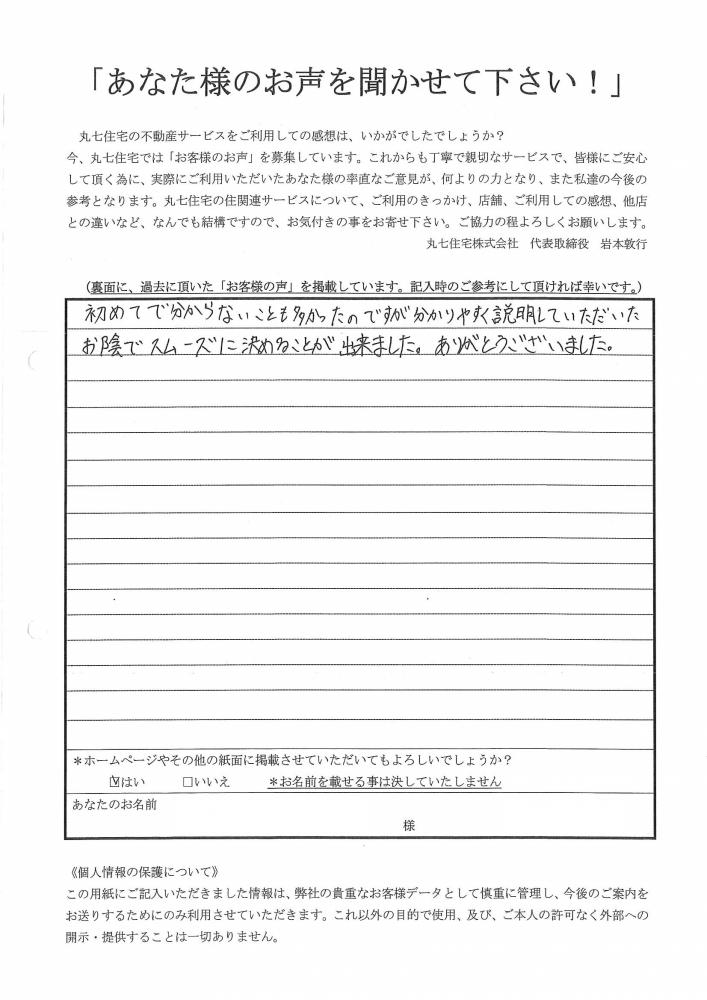 「あなた様のお声を聞かせて下さい！」
丸七住宅の不動産サービスをご利用しての感想は、いかがでしたでしょうか？
今、丸七住宅では「お客様のお声」を募集しています。これからも丁寧で親切なサービスで、皆様にご安心
して頂く為に、実際にご利用いただいたあなた様の率直なご意見が、何よりの力となり、また私達の今後の
参考となります。丸七住宅の住関連サービスについて、ご利用のきっかけ、店舗、ご利用しての感想、他店
との違いなど、なんでも結構ですので、お気付きの事をお寄せ下さい。ご協力の程よろしくお願いします。
丸七住宅株式会社　代表取締役　岩本敦行
（裏面に、過去に頂いた「お客様の声」を掲載しています。記入時のご参考にして頂ければ幸いです。）
初めてで分からないことも多かったのですが分かりやすく説明していただいた
お陰でスムーズに決めることが出来ました。ありがとうございました。
＊ホームページやその他の紙面に掲載させていただいてもよろしいでしょうか？
☑はい　□いいえ　＊お名前を載せる事は決していたしません
あなたのお名前
様
《個人情報の保護について》
この用紙にご記入いただきました情報は、弊社の貴重なお客様データとして慎重に管理し、今後のご案内を
お送りするためにのみ利用させていただきます。これ以外の目的で使用、及び、ご本人の許可なく外部への
開示・提供することは一切ありません。